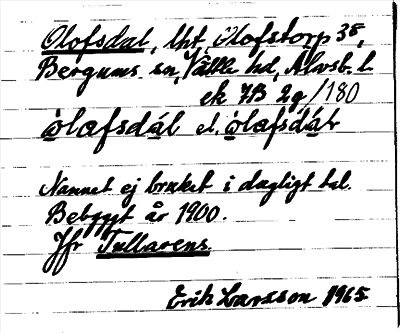 Olofsdal, lht, Olofstorp 3⁸,
Bergums sn, Vättle hd, Älvsb. l.
ek 7B 2g/180
òlafsdál el. òlafsdál
Namnet ej brukat i dagligt tal.
Bebyggt år 1900.
Jfr Tullarens.
Erik Larsson 1965